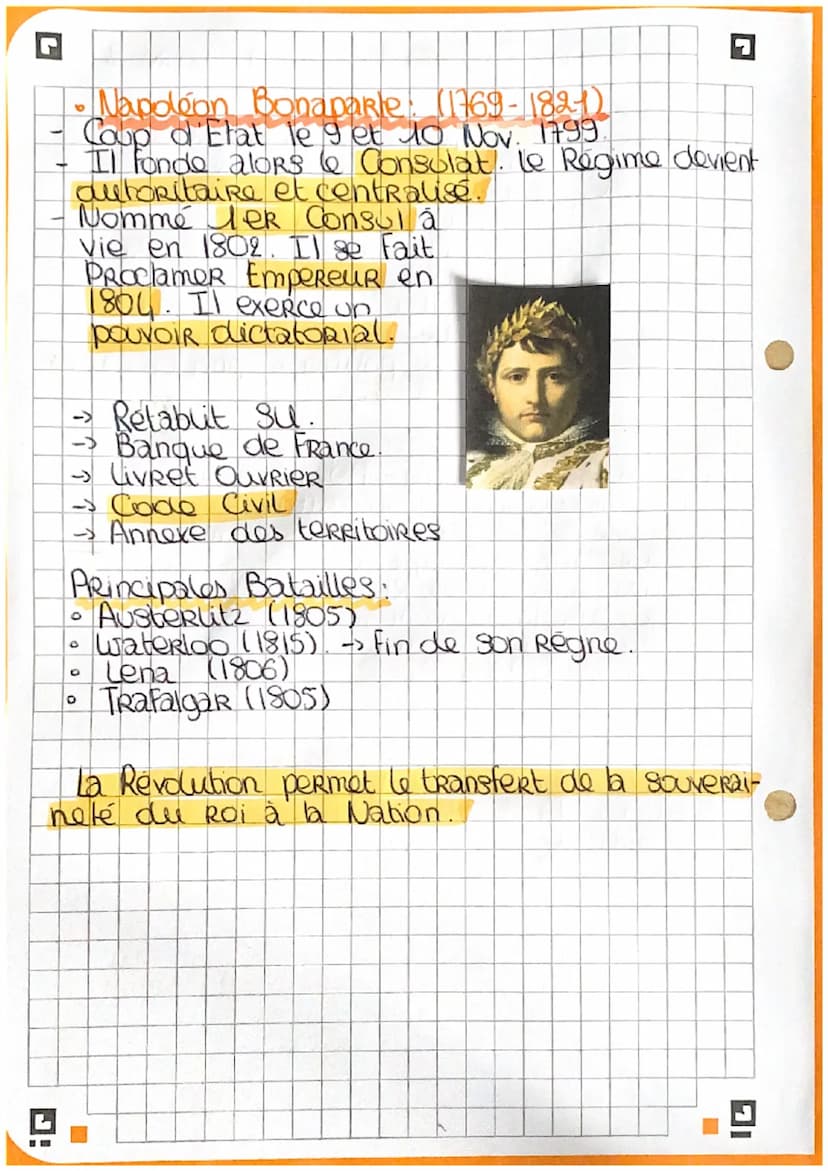 • Napoléon Bonaparte: (1769-1821)
- Coup d'Etat le 9 et 10 Nov. 1799.
- Il fonde alors le Consulat. Le Régime devient
autoritaire et centralisé.
- Nommé 1er Consul à
vie en 1802. Il se fait
proclamer Empereur en
1804. Il exerce un
pouvoir dictatorial.
→ Rétablit SU.
→ Banque de France.
→ Livret Ouvrier
→ Code Civil
→ Annexe des territoires
Principales Batailles:
• Austerlitz (1805)
• Waterloo (1815). → fin de son règne.
• Lena (1806)
• Trafalgar (1805)
La Révolution permet le transfert de la souverai-
neté du roi à la Nation.